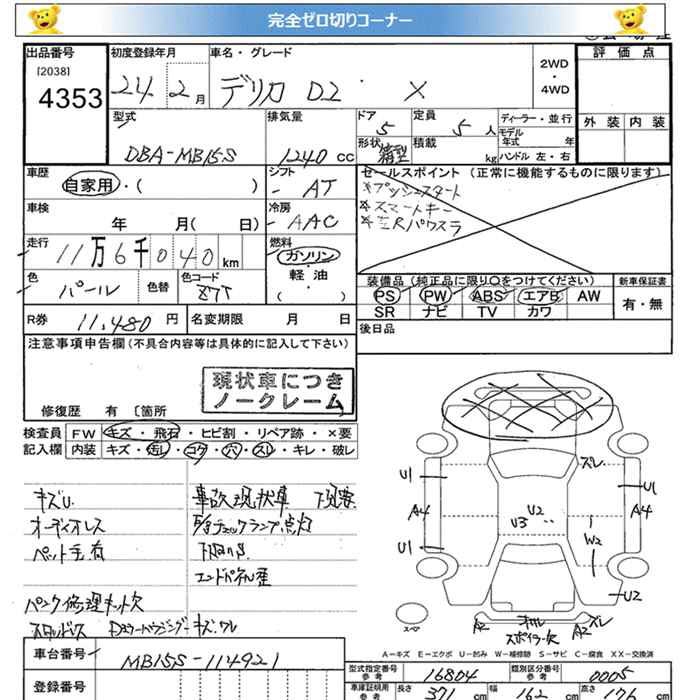 完全ゼロ切りコーナー
出品番号 [2038] 4353
初度登録年月 24 2月
車名・グレード デリカ D2 X
2WD・4WD
評価点
外装 内装
型式 DBA-MB15S
排気量 1240 cc
ドア 5
定員 5 人
形状 箱型
積載 kg
ディーラー・並行
モデル年式 年
ハンドル 左・右
車歴 自家用・( )
シフト - AT
車検 年 月( 日)
冷房 - AAC
走行 11万6千040km
燃料 ガソリン・軽油 ( ・ )
色 パール
色替
色コード Z7T
セールスポイント (正常に機能するものに限ります)
*プッシュスタート
*スマートキー
*左Rパワスラ
装備品 (純正品に限り〇をつけてください)
PS PW ABS エアB AW
SR ナビ TV カワ
新車保証書 有・無
R券 11,480 円
名変期限 月 日
後日品
注意事項申告欄(不具合内容等は具体的に記入して下さい)
現状車につき
ノークレーム
修復歴 有 〔箇所
検査員 FW キズ・飛石・ヒビ割・リペア跡・×要
記入欄 内装 キズ・汚レ・コゲ・穴・スレ・キレ・破レ
キズU. 事故現状車 下見要
オーディオレス チェックランプ点灯
ペット毛有 下廻りS
エンドパネル歪
パンク修理キット欠
スタッドレス Dミラーハウジングーキズワレ
ズレ
U1 U1
A4 A4
U2
U3
U1 W2
U2
スペア
A2 オル A2 ズレ
スポイラー欠
A-キズ E-エクボ U-凹み W-補修跡 S-サビ C-腐食 XX-交換済
車台番号 MB15S-114921
登録番号
型式指定番号 参考 16804
類別区分番号 参考 0005
車庫証明用 参考 長さ 371 cm 幅 162 cm 高さ 176 cm